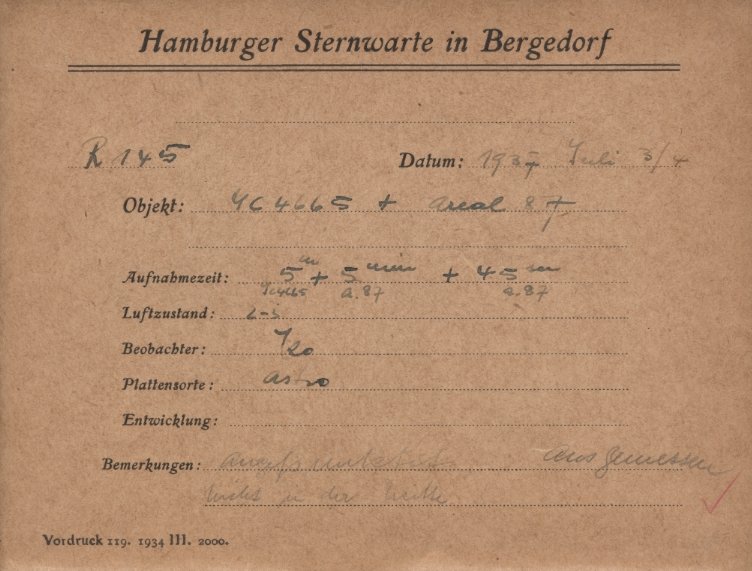 Hamburger Sternwarte in Bergedorf
R 145 Datum: 1937 Juli 3/4
Objekt: 4665 + areal 87
Aufnahmezeit: 5m + 5min + 45m
4665 a.87 a.87
Luftzustand: 2-3
Beobachter:
Plattensorte: astro
Entwicklung:
Bemerkungen: ausgemessen
nicht in der Mitte
Vordruck 119. 1934 III. 2000.